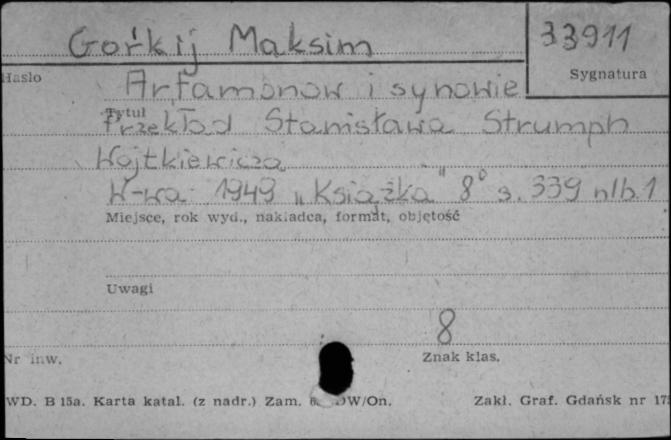 Gorkij Maksim 33911
Hasło Sygnatura
Artamonow i synowie
Tytuł
Przekład Stanisława Strumph
Wojtkiewicza
W-wa 1949 „Książka" 8° s. 339 nlb. 1
Miejsce, rok wyd., nakładca, format, objętość
Uwagi
8
Nr inw. Znak klas.
WD. B 15a. Karta katal. (z nadr.) Zam. W/On. Zakł. Graf. Gdańsk nr